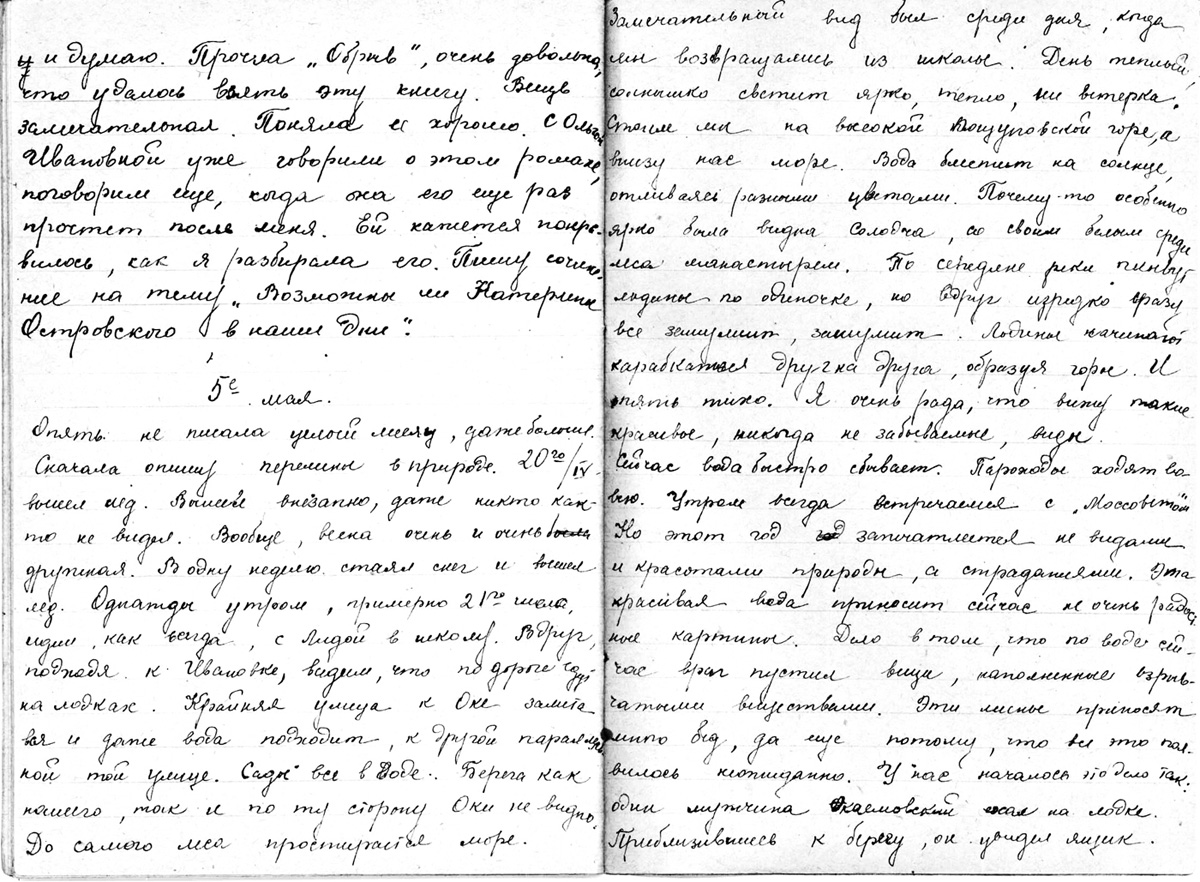 и думаю. Прочла „Обрыв“, очень довольна,
что удалось взять эту книгу. Вещь
замечательная. Поняла ее хорошо. С Ольгой
Ивановной уже говорили о этом романе,
поговорим еще, когда она его еще раз
простет после меня. Ей кажется понра-
вилось, как я разбирала его. Пишу сочине-
ние на тему „Возможны ли Катерины
Островского в наши дни“.
5е мая.
Опять не писала целый месяц, даже больше.
Сначала опишу перемены в природе. 20го/IV
вышел лед. Вышел внезапно, даже никто как-
то не видел. Вообще, весна очень и очень была
дружная. В одну неделю стаял снег и вышел
лед. Однажды утром, примерно 21го числа,
идем, как всегда, с Лидой в школу. Вдруг,
подходя к Ивановке, видим, что по дороге едут
на лодках. Крайняя улица к Оке залита
вся и даже вода подходит, к другой параллель-
ной той улице. Сады все в воде. Берега как
нашего, так и по ту сторону Оки не видно.
До самого леса простирается море.
Замечательный вид был среди дня, когда
мы возвращались из школы. День теплый,
солнышко светит ярко, тепло, ни ветерка.
Стоим мы на высокой горе, а
внизу нас море. Вода блестит на солнце,
отливаясь разными цветами. Почему-то особенно
ярко была видна Солодча, со своим белым среди
леса манастырем. По середине реки плывут
льдины по одиночке, но вдруг изредко сразу
все зашумит, зашумит. Льдины начинают
карабкаться друг на друга, образуя горы. И
опять тихо. Я очень рада, что вижу такие
красивые, никогда не забываемые, виды.
Сейчас вода быстро сбывает. Пароходы ходят во-
всю. Утром всегда встречаемся с „Моссоветом“
Но этот год запечатлеется не видами
и красотами природы, а страданиями. Эта
красивая вода приносит сейчас не очень радост-
ные картины. Дело в том, что по воде сей-
час враг пустил вещи, наполненные взрыв-
чатыми веществами. Эти мины приносят
много бед, да еще потому, что все это поя-
вилось неожиданно. У нас началось это дело так:
один мужчина Окаемовский ехал на лодке.
Приблизившись к берегу, он увидел ящик.